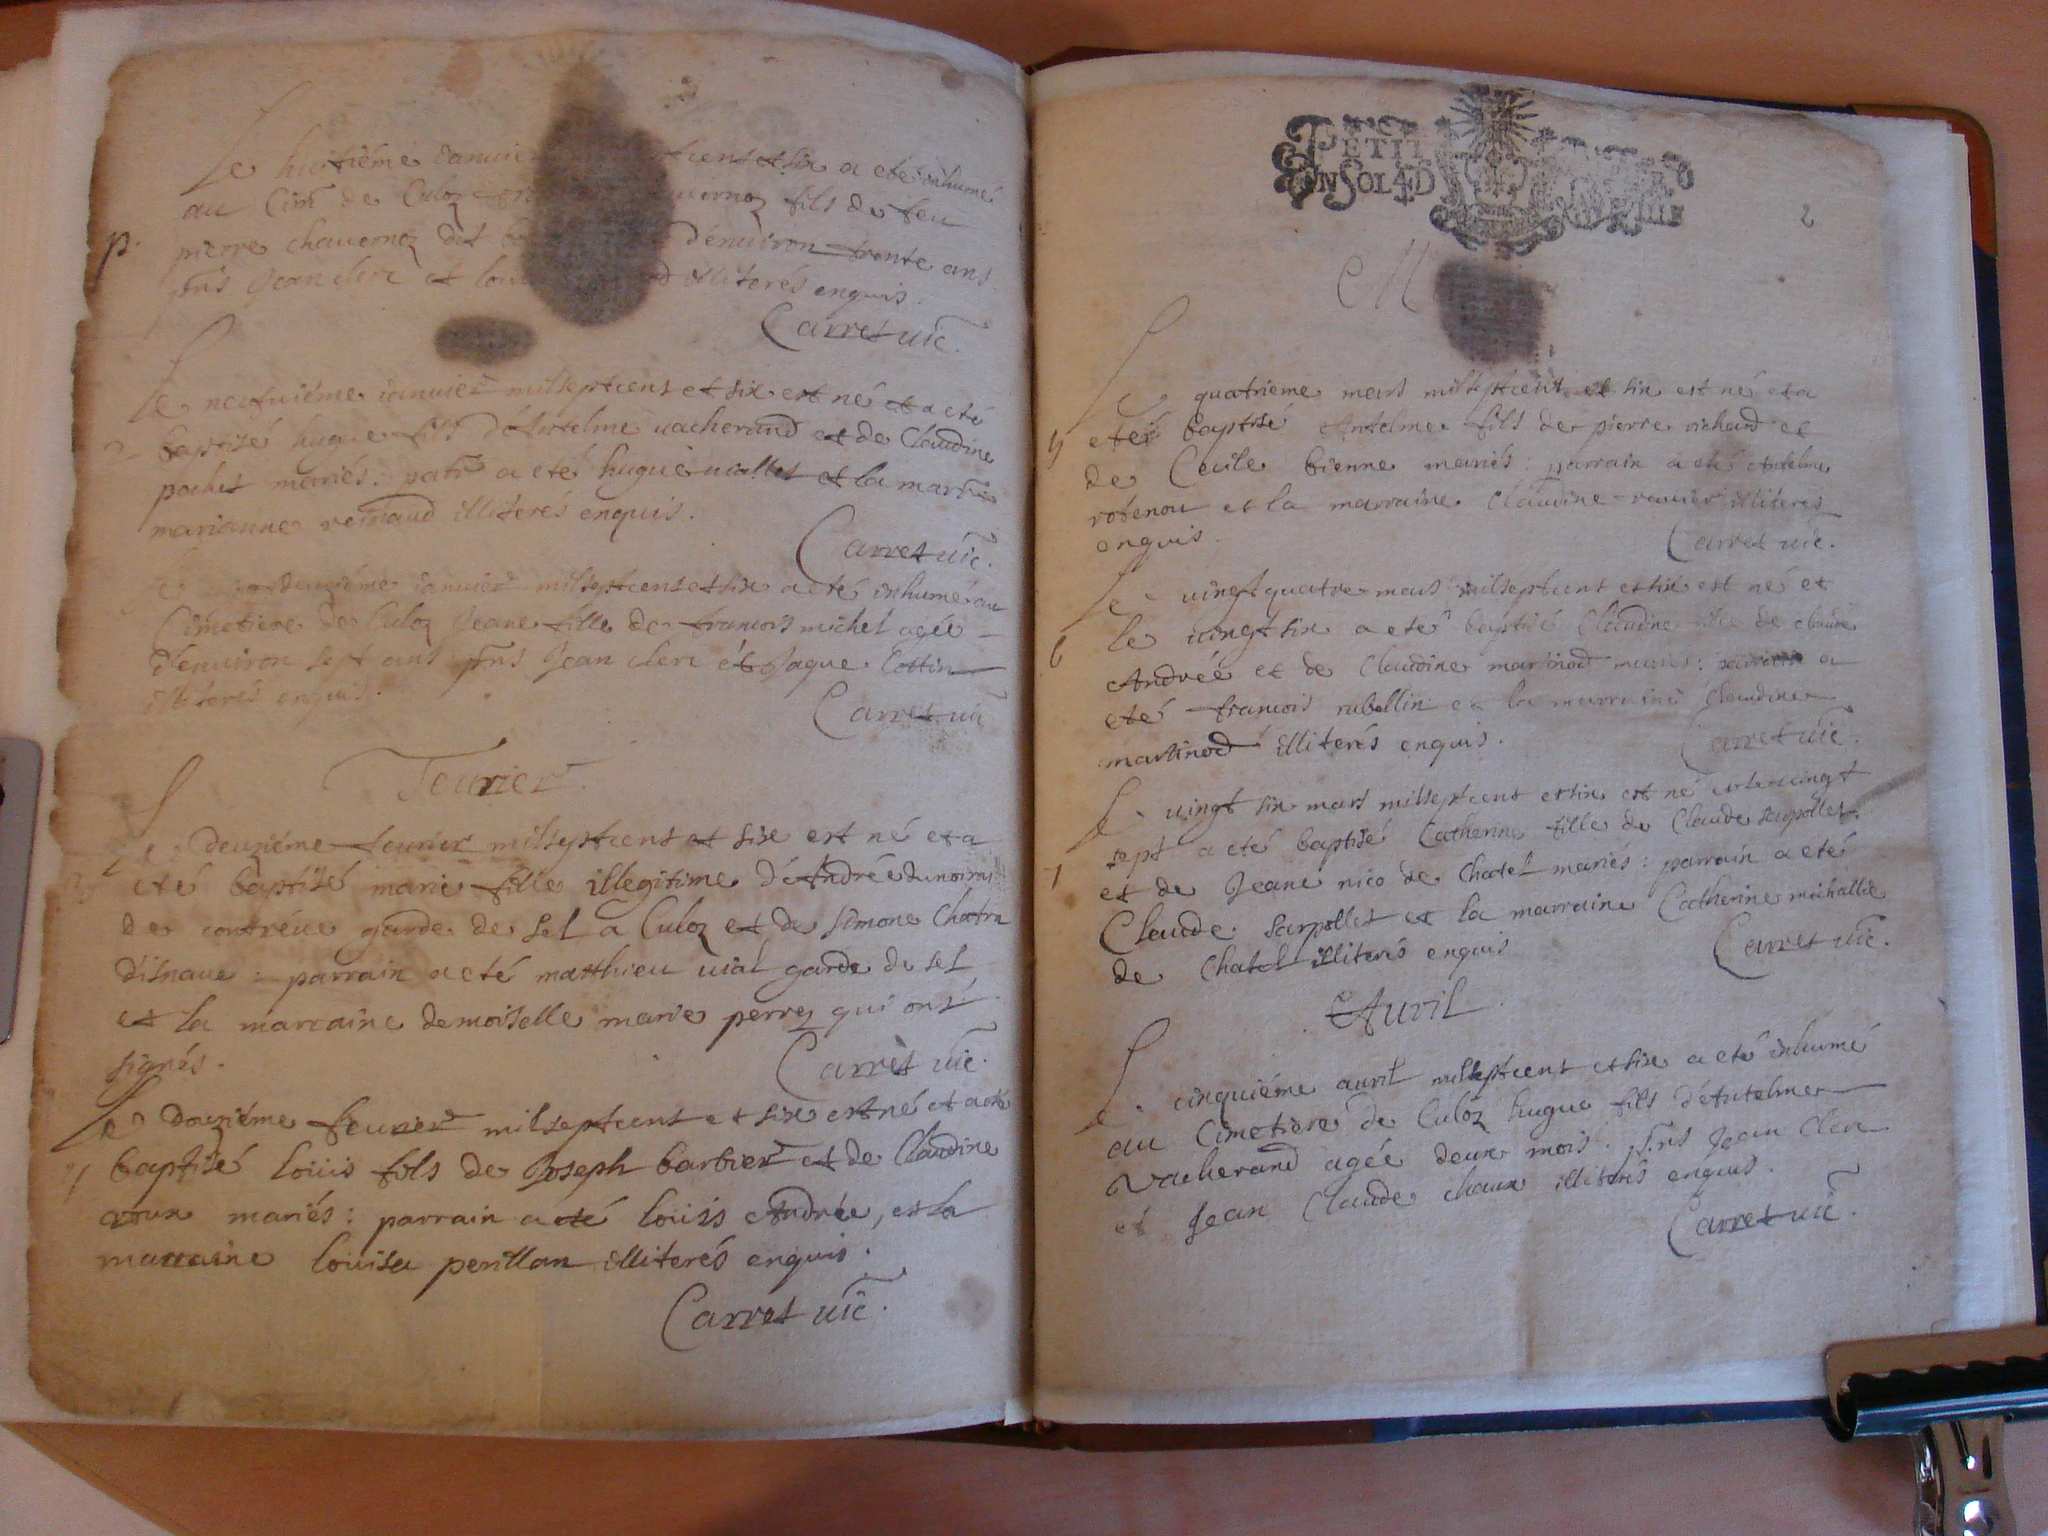 Le huitiéme Januier cent et six a eté inhumé
au Cim de Culoz fils de feu
p. pierre chauernoz dit d'enuiron trente ans
pns Jean clerc et illiterés enquis.
Carret uic.
Le neufuiéme Januier milseptcent et six est né et a eté
2 baptisé hugue fils d'Antelme uacherand et de Claudine
pochet mariés: patr a eté hugue uiallet et la marr
marianne reinaud illiterés enquis.
Carret uic.
Le Januier milseptcent et six a eté inhumé au
Cimetiere de Culoz Jeane fille de francois michel agée
d'enuiron sept ans pns Jean clerc et Jaque Cottin
illiterés enquis.
Carret uic
feurier
Le deuziéme feurier milseptcent et six est né et a
3 eté baptisé marie fille illegitime d'Andrée
de garde de sel a Culoz et de simone
: parrain a eté matthieu uial garde de sel
et la marraine demoiselle marie perrez qui ont
signés.
Carret uic.
Le douziéme feurier milseptcent et six est né et a eté
4 baptisé loüis fils de Joseph barbier et de Claudine
roux mariés: parrain a eté loüis Andrée, et la
marraine louise perillan illiterés enquis.
Carret uic.
PETIT
EN SOL 4 D
2
M
Le quatrieme mars milseptcent et six est né et a
5 eté baptisé Antelme fils de pierre richard et
de Cecile bienne mariés: parrain a eté Antelme
robenou et la marraine Claudine illiteres
enquis.
Carret uic.
Le uingt quatre mars milseptcent et six est né et
6 le uingt six a eté baptisé Claudine fille de claude
Andrée et de Claudine martinod mariés: parrain a
eté francois rubellin et la marraine Claudine
martinod illiterés enquis.
Carret uic.
Le uingt six mars milseptcent et six est né et le uingt
sept a eté baptisé Catherine fille de Claude sarpollet
7 et de Jeane nico de Chatel mariés: parrain a eté
Claude sarpollet et la marraine Catherine michallie
de Chatel illiterés enquis
Carret uic.
Auril
Le cinquiéme auril milseptcent et six a eté inhumé
au Cimetiere de Culoz hugue fils d'Antelme
Vacherand agée deux mois. pns Jean Clerc
et Jean Claude chaux illiterés enquis.
Carret uic.